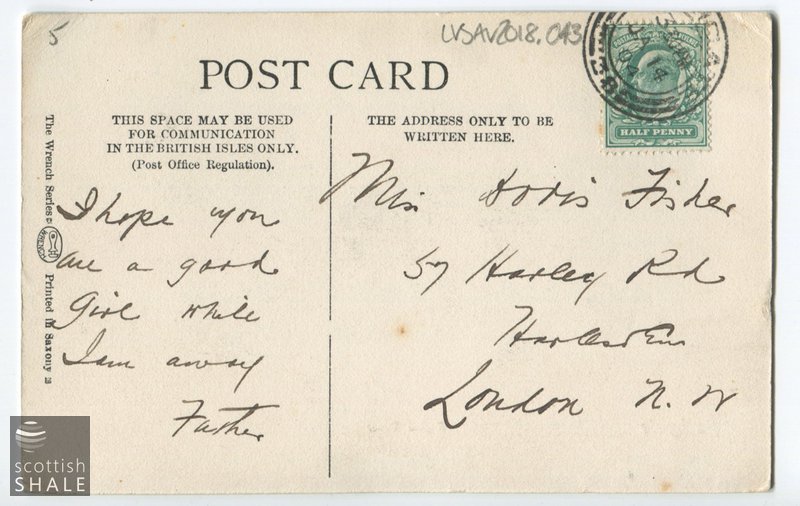 5
LVSAV2018.043
POST CARD
THIS SPACE MAY BE USED
FOR COMMUNICATION
IN THE BRITISH ISLES ONLY.
(Post Office Regulation).
THE ADDRESS ONLY TO BE
WRITTEN HERE.
HALF PENNY
The Wrench Series
WRENCH
Printed in Saxony
I hope you
are a good
Girl while
I am away
Father
Miss Doris Fisher
57 Harley Rd
Harlesden
London N. W
scottish
SHALE